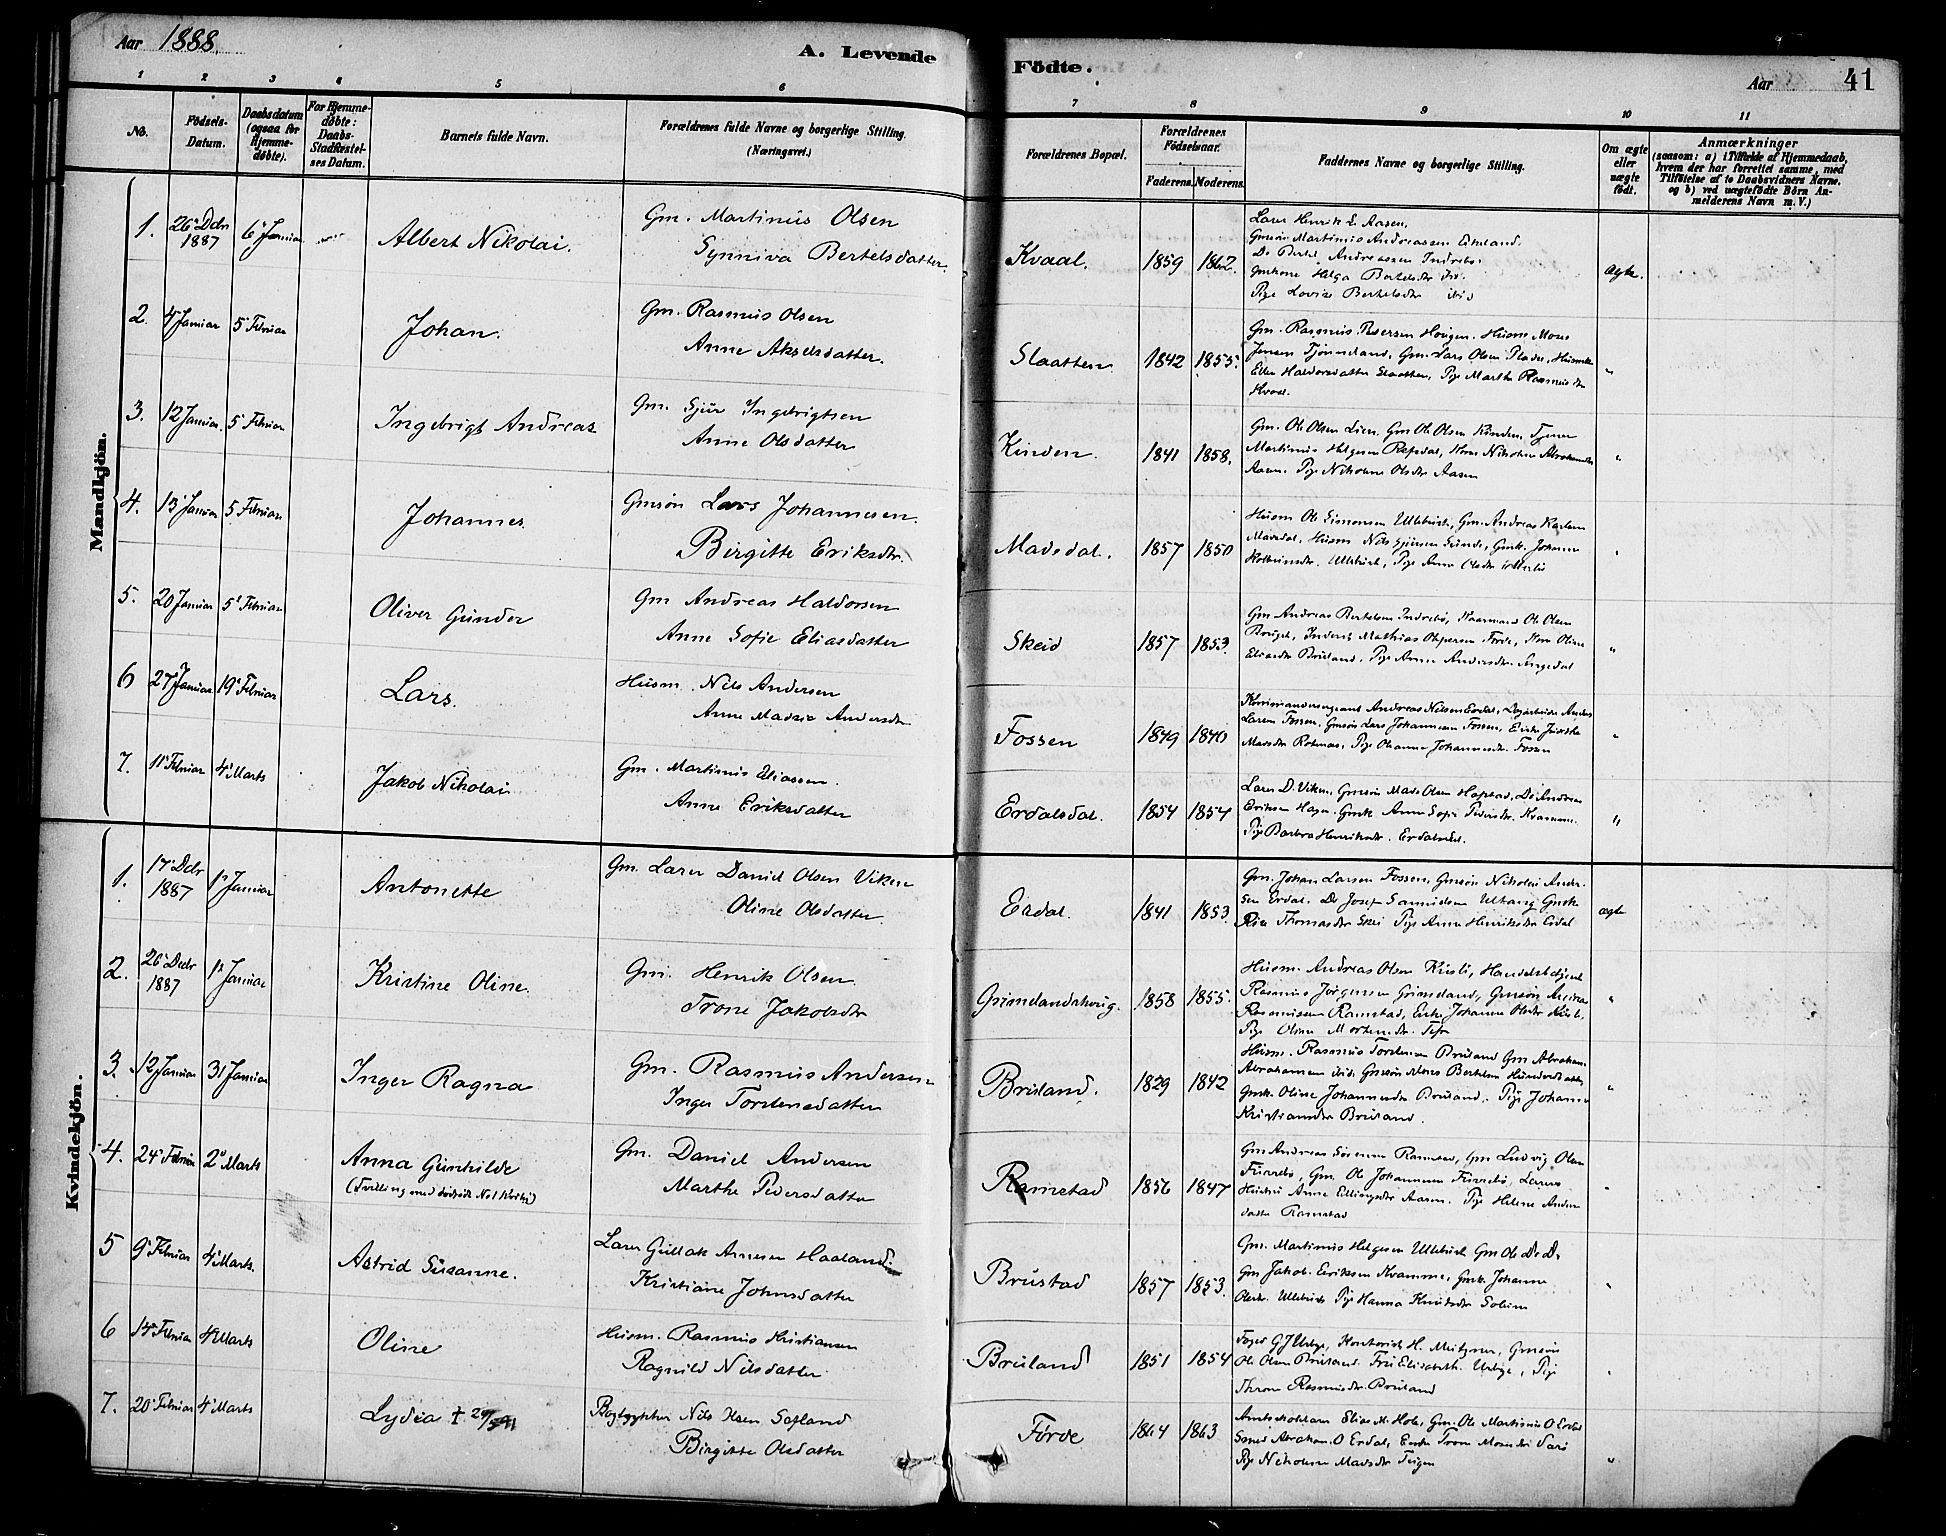 Aar 1888.
A. Levende Födte.
Aar 41
1 2 3 4 5 6 7 8 9 10 11
No.
Födsels-Datum.
Daabsdatum (ogsaa for Hjemme-döbte).
For Hjemme-döbte: Daabs-Stadfæstel-ses Datum.
Barnets fulde Navn.
Forældrenes fulde Navne og borgerlige Stilling. (Næringsvei.)
Forældrenes Bopæl.
Forældrenes Födselsaar.
Faderens. Moderens.
Faddernes Navne og borgerlige Stilling.
Om ægte eller uægte födt.
Anmærkninger
(saasom: a) i Tilfælde af Hjemmedaab,
hvem der har forrettet samme, med
Tilföielse af to Daabsvidners Navne.
og b) ved uægtefödte Börn An-
melderens Navn m. V.)
Mandkjön.
1. 26 Decbr 1887 6 Januar Albert Nikolai. Gm. Martinus Olsen
Synniva Bertelsdatter. Kvaal. 1859 1862. ægte.
Lærer Henrik L. Aasen,
Gmsön Martinus Andreassen
Do Bertel Andreassen Indrebö.
Gmkone Helga Bertelsdtr
Pige Lovise Bertelsdtr ibid
2. 4 Januar 5 Februar Johan. Gm. Rasmus Olsen
Anne Akselsdatter. Slaatten 1842 1855. "
Gm. Rasmus Pedersen Hougen. Husm Mons
Jensen Tjönneland, Gm. Lars Olsen
Ellen Haldorsdatter Slaatten, Pige Marthe Rasmusdtr
Kvaal.
3. 12 Januar. 5 Februar Ingebrigt Andreas Gm. Sjur Ingebrigtsen
Anne Olsdatter Kinden. 1841 1858. "
Gm. Ole Olsen Lien, Gm Ole Olsen Kinden, Tjener
Martinus Helgesen
Aasen. Pige Nikoline Olsdtr Aasen
4. 13 Januar 5 Februar Johannes Gmsön Lars Johannesen.
Birgitte Eriksdtr. Madsdal. 1857 1850 "
Husm Ole Simonsen Ullebust, Gm. Andreas
Madsdal, Husm Nils Sjursen Sunde, Gmk. Johanne
Ullebust, Pige Anne Olsdtr
5. 20 Januar 5 Februar Oliver Gunder Gm Andreas Haldorsen
Anne Sofie Eliasdatter Skeid 1857 1853. "
Gm Andreas Bertelsen Indrebö, Ole Olsen
Mathias Förde,
Eliasdtr Bruland. Pige Anne Andersdtr Angedal
6 27 Januar 19 Februar Lars. Husm. Nils Andersen
Anne Madsdtr Andersdtr. Fossen 1849 1840 "
Kommandersergeant Andreas Nilsen Erdal, Anders
Larsen Fossen, Gmsön Lars Johannesen Fossen, Enke
Madsdtr Pige Johannesdtr. Fossen
7. 11 Februar 4 Marts Jakob Nikolai Gm. Martinus Eliassen.
Anne Eriksdatter Erdalsdal. 1854 1854 "
Lærer D. Viken, Gmsön Mads Olsen Hafstad, Do Andreas
Eriksen Gmk Anne Sofie Pedersdtr. Kvamme.
Pige Barbra Henriksdtr. Erdalsdal.
Kvindekjön.
1. 17 Decbr 1887 1 Januar Antonette Gm. Lærer Daniel Olsen Viken
Oline Olsdatter Erdal. 1841 1853. ægte
Gm. Johan Larsen Fossen, Gmsön Nikolai Ander-
sen Erdal. Do Josef Samuelsen Gmk
Thomasdtr Skei Pige Anne Henriksdtr Erdal
2. 26 Decbr 1887 1 Januar Kristine Oline. Gm. Henrik Olsen.
Trone Jakobsdtr Grimelandshoug. 1858 1855. "
Husm. Andreas Olsen Handelsbetjent
Rasmus Jörgensen Grimeland, Gmsön Andreas
Rasmussen Ramstad, Enke Johanne Olsdtr
Pige Oline Mortensdtr.
3. 12 Januar 31 Januar Inger Ragna Gm. Rasmus Andersen
Inger Torstensdatter Bruland. 1829 1842 "
Husm. Rasmus Torstensen Bruland Gm Abraham
Abrahamsen ibid, Gmsön Mons Bertelsen
Gmk. Oline Johannesdtr Bruland. Pige Johanne
Kristiansdtr Bruland.
4. 24 Februar 2 Marts Anna Gunhilde
(Tvilling med dödfödt No 1 Kvkj) Gm. Daniel Andersen
Marthe Pedersdatter Ramstad 1856 1847 "
Gm Andreas Sörensen Ramstad, Gm Ludvig Olsen
Furebö, Gm. Ole Johannesen Furebö, Lærers
Hustru Anne Ellingsdtr Aasen. Pige Helene Anders-
datter Ramstad
5 9 Februar 4 Marts. Astrid Susanne. Lærer Gullak Arnesen Haaland.
Kristiane Johnsdatter Brustad 1857 1853. "
Gm. Martinus Helgesen Ullebust Gm Ole Do Do
Gm Jakob Eriksen Kvamme, Gmk. Johanne
Olsdtr. Ullebust Pige Hanna Knutsdtr Solem
6 14 Februar 4 Marts Oline Husm. Rasmus Kristiansen
Ragnild Nilsdatter Bruland 1851 1854 "
Foged G J Urbye, Kontorist H. Gmsön
Ole Olsen Bruland. Fru Elisabeth Urbye, Pige
Rasmusdtr. Bruland
7. 20 Februar 4 Marts Lydia † Bogtrykker Nils Sefland
Birgitte Olsdatter Förde 1864 1863 "
Elias M. Hole, Gm. Ole Martinus O Erdal
Smed Abraham O Erdal, Enke Trone Monsdtr
Pige Nikoline Madsdtr Teigen